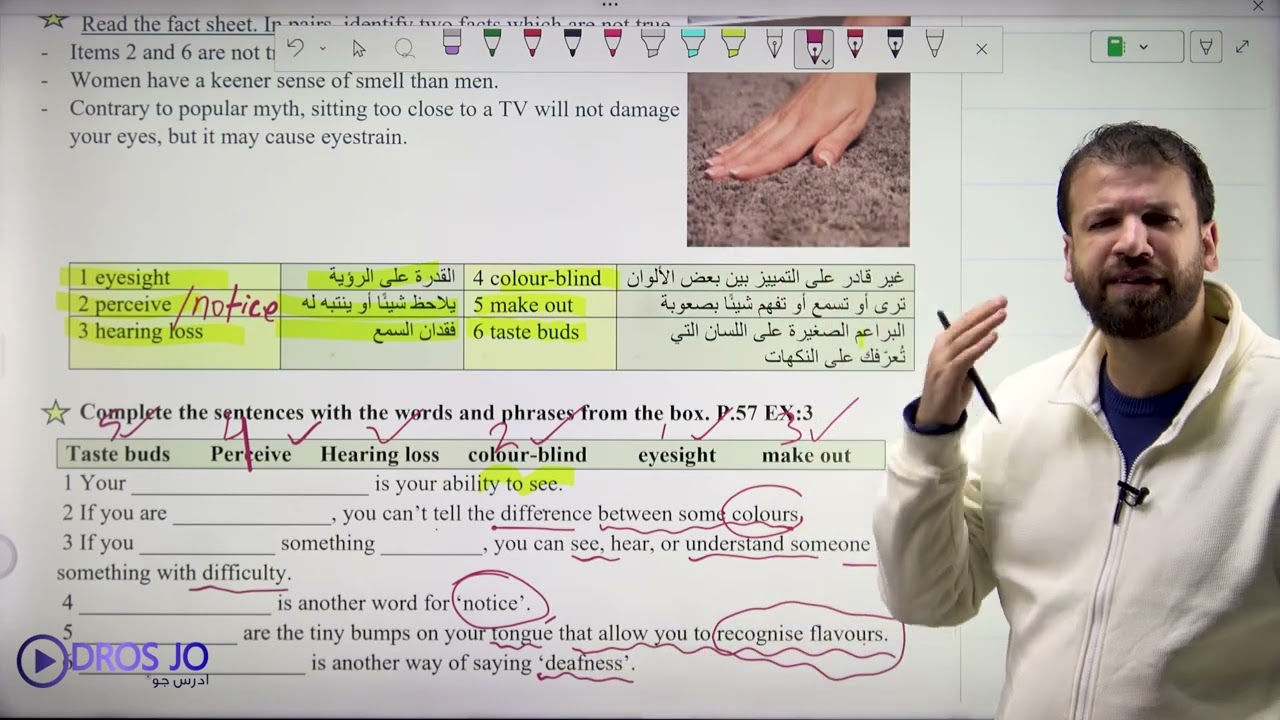 Read the fact sheet. In pairs, identify two facts which are not true
- Items 2 and 6 are not t
- Women have a keener sense of smell than men.
- Contrary to popular myth, sitting too close to a TV will not damage
your eyes, but it may cause eyestrain.
1 eyesight القدرة على الرؤية 4 colour-blind غير قادر على التمييز بين بعض الألوان
2 perceive /notice يلاحظ شيئًا أو ينتبه له 5 make out ترى أو تسمع أو تفهم شيئًا بصعوبة
3 hearing loss فقدان السمع 6 taste buds البراعم الصغيرة على اللسان التي
تُعرّفك على النكهات
Complete the sentences with the words and phrases from the box. P.57 EX:3
5 4 2 1 3
Taste buds Perceive Hearing loss colour-blind eyesight make out
1 Your ____________________ is your ability to see.
2 If you are ______________, you can’t tell the difference between some colours,
3 If you ____________ something _________, you can see, hear, or understand someone
something with difficulty.
4 _________________ is another word for ‘notice’.
5 ______________ are the tiny bumps on your tongue that allow you to recognise flavours.
____________________ is another way of saying ‘deafness’.
DROS JO
ادرس جو